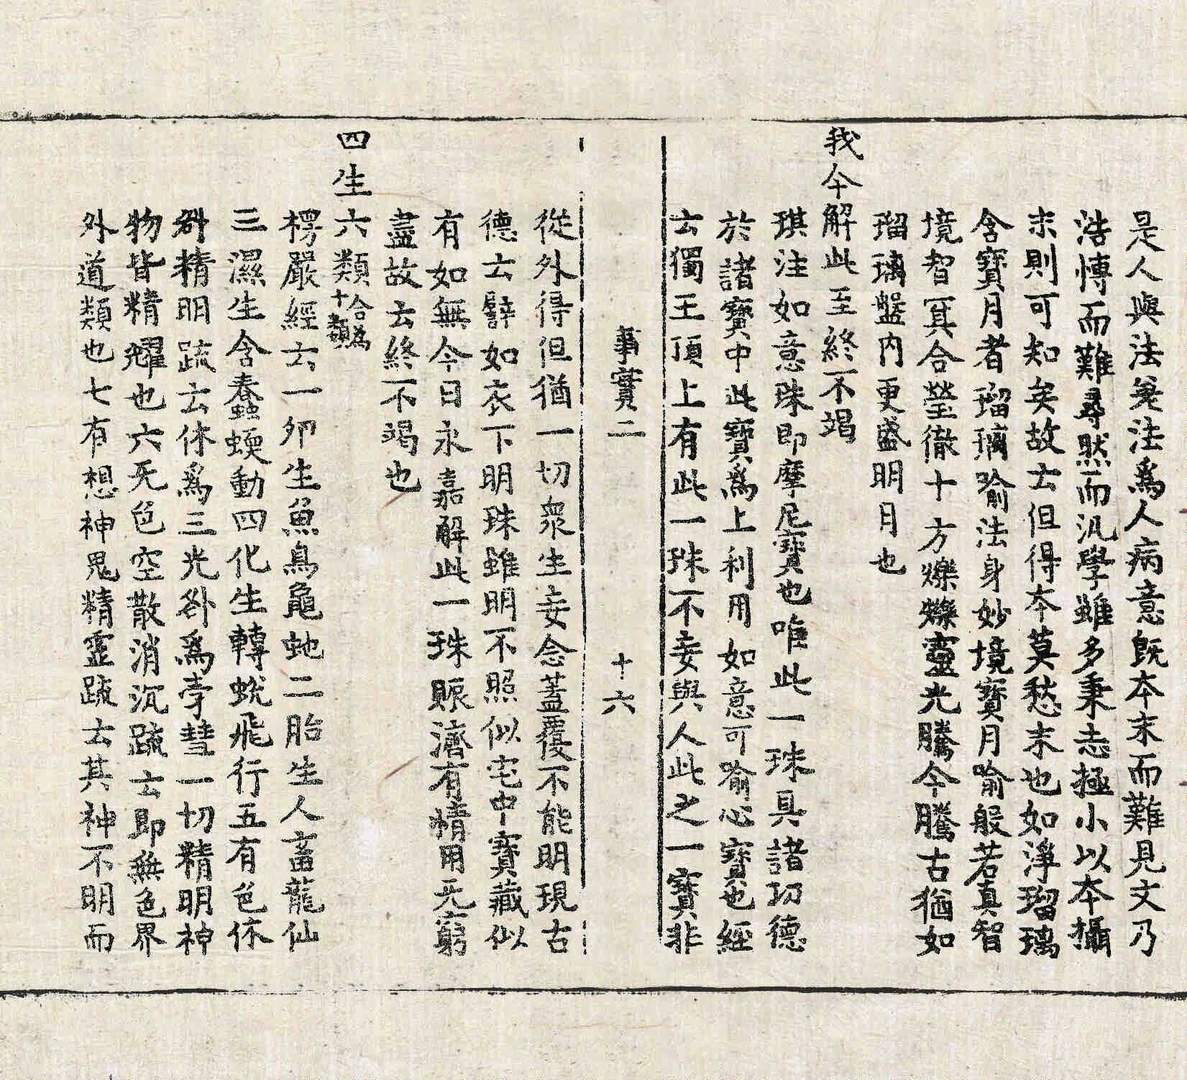 是人與法㒵法爲人病意旣本末而難見文乃
浩慱而難尋然而汎學雖多秉志極小以本攝
末則可知矣故云但得本莫愁末也如淨瑠璃
含寶月者瑠璃喻法身妙境寶月喻般若真智
境智冥合瑩徹十方爍爍靈光騰今騰古猶如
瑠璃盤內更盛明月也
我今解此至終不竭
琪注如意珠即摩尼寶也唯此一珠具諸功德
於諸寶中此寶爲上利用如意可喻心寶也經
云獨王頂上有此一珠不妄與人此之一寶非
事實二 十六
從外得但猶一切衆生妄念蓋覆不能明現古
德云譬如衣下明珠雖明不照似宅中寶藏似
有如無今日永嘉解此一珠賑濟有情用无窮
盡故云終不竭也
四生六類合爲十類
楞嚴經云一卵生魚鳥龜虵二胎生人畜龍仙
三濕生含蠢蝡動四化生轉蛻飛行五有色休
咎精明疏云休爲三光咎爲孛彗一切精明神
物皆精耀也六无色空散消沉疏云即無色界
外道類也七有想神鬼精靈疏云其神不明而